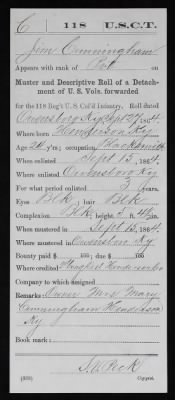 C | 118 | U.S.C.T.
Jim Cunningham
Appears with rank of Pvt
Muster and Descriptive Roll of a Detach-
ment of U. S. Vols. forwarded
for the 118 Reg't U.S. Col'd Infantry. Roll dated
Owensboro Ky Sept 27, 1864.
Where born Henderson Ky
Age 20 y'rs; occupation Blacksmith
When enlisted Sept 15, 1864.
Where enlisted Owensboro Ky
For what period enlisted 3 years.
Eyes Blk; hair Blk
Complexion Blk; height 5 ft. in.
When mustered in Sept 15, 1864.
Where mustered in Owensboro Ky
Bounty paid $ 100; due $ 100
Where credited
Company to which assigned
Remarks: Owner Mrs Mary
Cunningham Henderson
Ky
Book mark:
Peck
(339) Copyist.